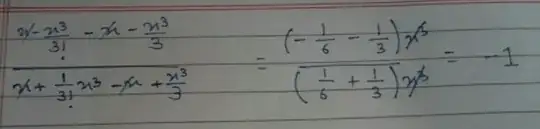 \frac{x - \frac{x^3}{3!} - x - \frac{x^3}{3}}{x + \frac{1}{3!}x^3 - x + \frac{x^3}{3}} = \frac{(-\frac{1}{6} - \frac{1}{3})x^3}{(\frac{1}{6} + \frac{1}{3})x^3} = -1